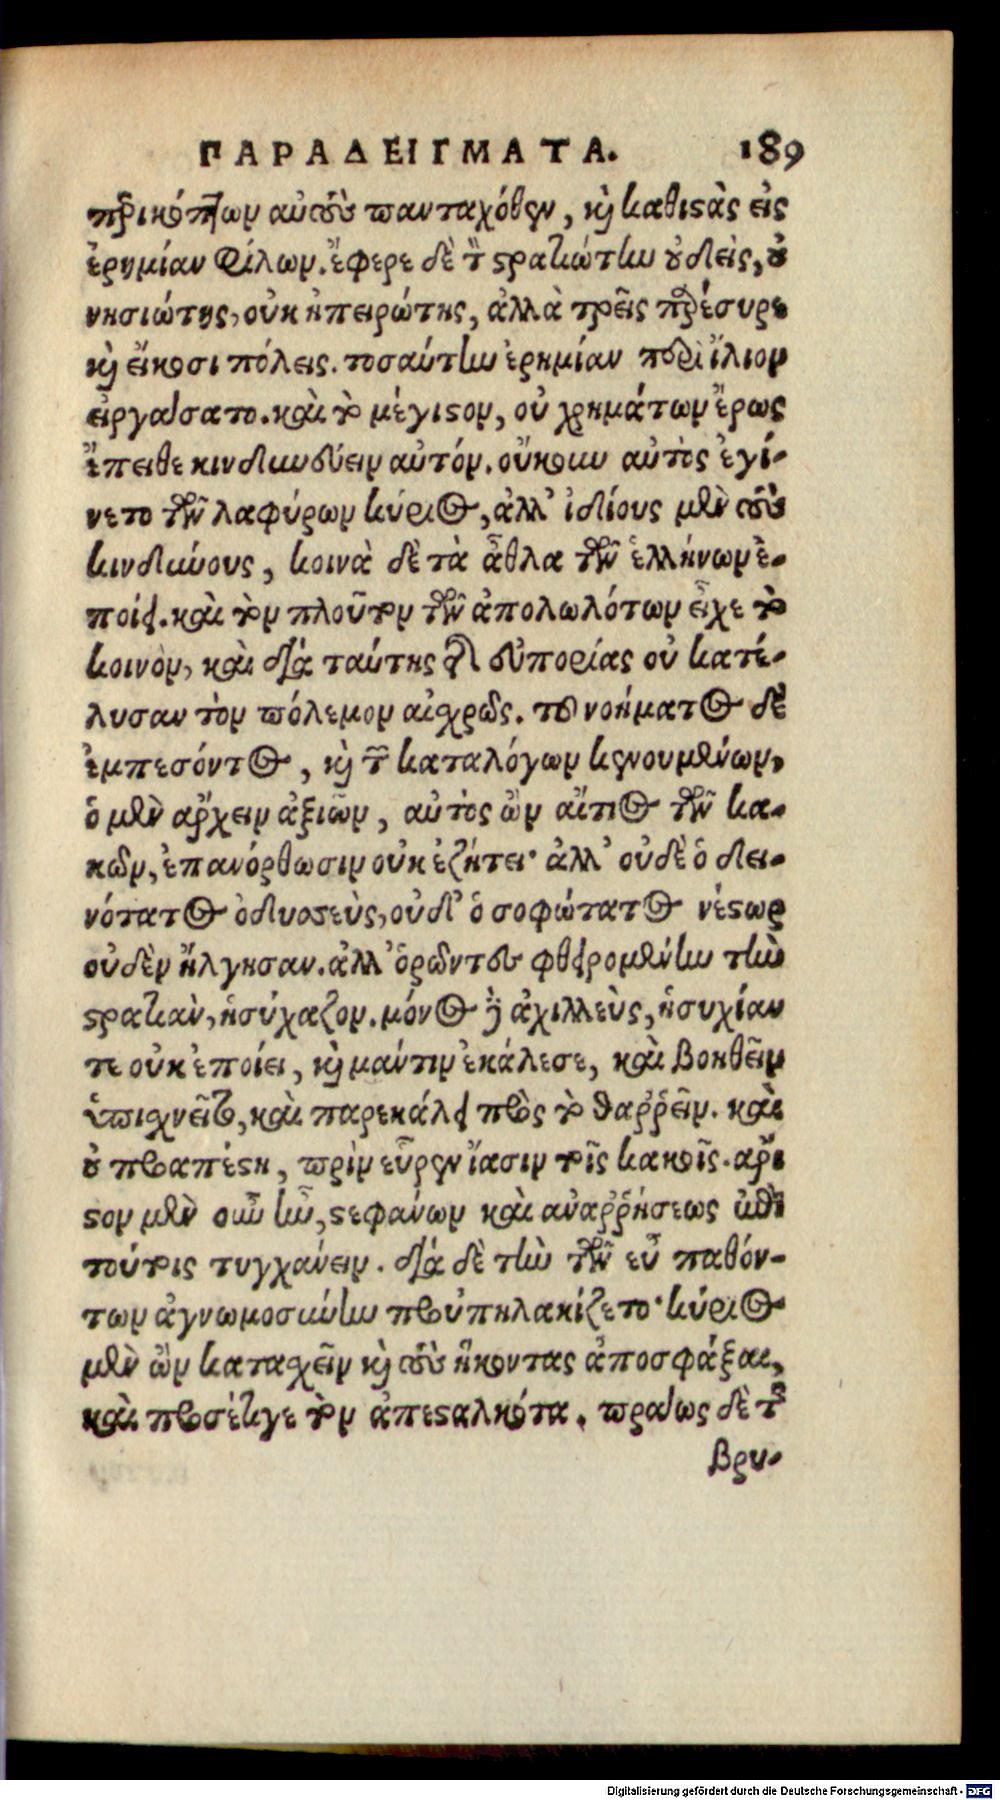 ΠΑΡΑΔΕΙΓΜΑΤΑ. 189
περικόπτων αὐτοὺς πανταχόθεν, καὶ καθιστὰς εἰς
ἐρημίαν φίλων. ἔφερε δὲ τὴν στρατιώτην οὐδεὶς, οὐ
νησιώτης, οὐκ ἠπειρώτης, ἀλλὰ τρεῖς παρέσυρε
καὶ εἴκοσι πόλεις. τοσαύτην ἐρημίαν περὶ ἴλιον
εἰργάσατο. καὶ τὸ μέγιστον, οὐ χρημάτων ἔρως
ἔπειθε κινδυνεύειν αὐτόν. οὔκουν αὐτὸς ἐγί-
νετο τῶν λαφύρων κύριος, ἀλλ' ἰδίους μὲν τοὺς
κινδύνους, κοινὰ δὲ τὰ ἆθλα τῶν ἑλλήνων ἐ-
ποίει. καὶ τὸν πλοῦτον τῶν ἀπολωλότων εἶχε τὸ
κοινὸν, καὶ διὰ ταύτης τῆς εὐπορίας οὐ κατέ-
λυσαν τὸν πόλεμον αἰσχρῶς. τοῦ νοσήματος δὲ
ἐμπεσόντος, καὶ τῶν καταλόγων κενουμένων,
ὁ μὲν ἄρχειν ἀξιῶν, αὐτὸς ὢν αἴτιος τῶν κα-
κῶν, ἐπανόρθωσιν οὐκ ἐζήτει· ἀλλ' οὐδὲ ὁ δει-
νότατος ὀδυσσεὺς, οὐδ' ὁ σοφώτατος νέστωρ
οὐδὲν ἤλγησαν. ἀλλ' ὁρῶντες φθειρομένην τὴν
στρατιὰν, ἡσύχαζον. μόνος δὲ ἀχιλλεὺς, ἡσυχίαν
τε οὐκ ἐποίει, καὶ μάντιν ἐκάλεσε, καὶ βοηθεῖν
ὑπισχνεῖτο, καὶ παρεκάλει πρὸς τὸ θαῤῥεῖν. καὶ
οὐ πρὸ ἀπέστη, πρὶν εὗρεν ἴασιν τοῖς κακοῖς. ἄρι
στον μὲν οὖν ἦν, στεφάνων καὶ ἀναῤῥήσεως ἐπὶ
τούτοις τυγχάνειν. διὰ δὲ τὴν τῶν εὖ παθόν-
των ἀγνωμοσύνην προὐπηλακίζετο· κύριος
μὲν ὢν κατασχεῖν καὶ τοὺς ἥκοντας ἀποσφάξαι,
καὶ προσέτι γε τὸν ἀπεσταλκότα. πράως δὲ τὴν
βρυ-
Digitalisierung gefördert durch die Deutsche Forschungsgemeinschaft - DFG